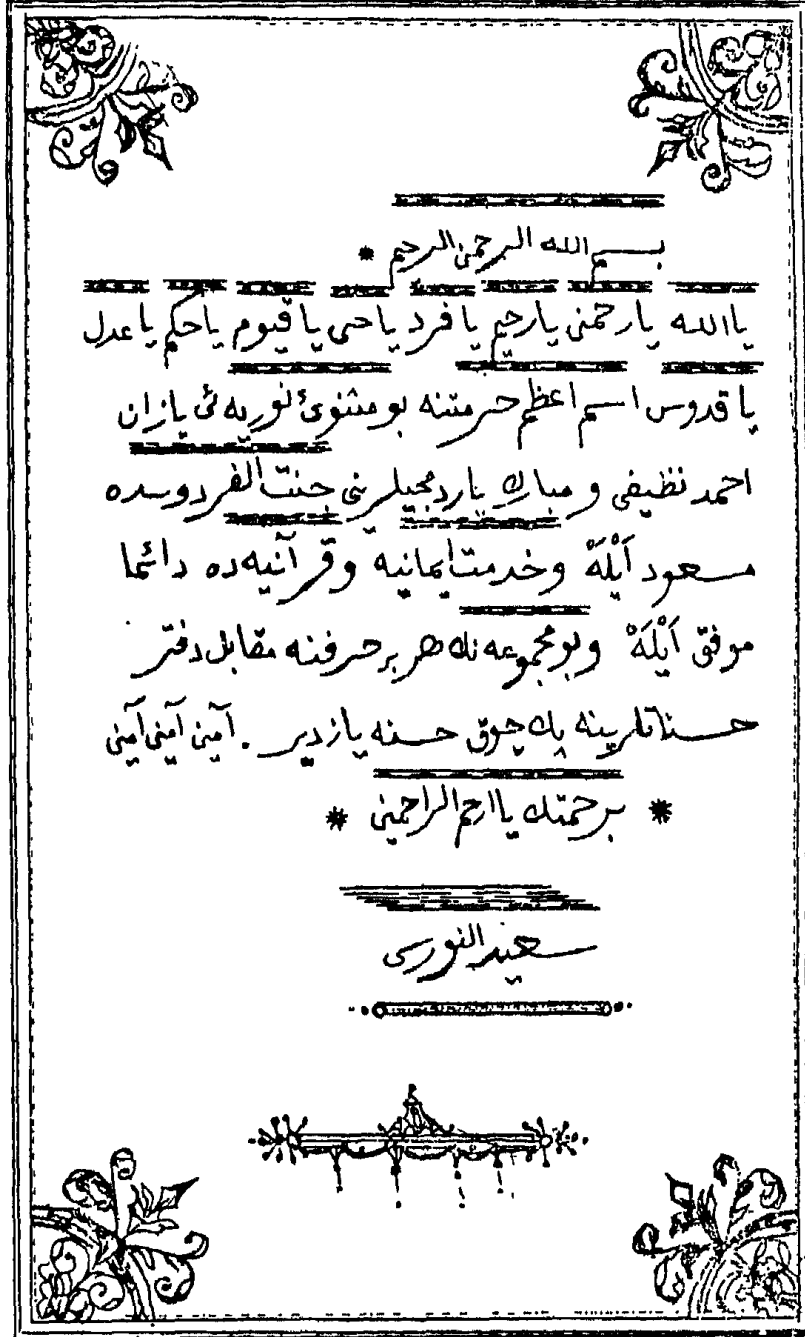 بسم الله الرحمن الرحيم *
يا الله يا رحمن يا رحيم يا فرد يا حى يا قيوم يا حكم يا عدل
يا قدوس اسم اعظم حرمتنه بو مثنوىٔ نوريه ئى يازان
احمد نظيفى و مبارك ياردمجيلرينى جنت الفردوسده
مسعود اَيْلَهْ وخدمت ايمانيه وقرآنيه ده دائما
موفق اَيْلَهْ وبو مجموعه نك هر بر حرفنه مقابل دفتر
حسناتلرينه پك چوق حسنه يازدير . آمين آمين آمين
* برحمتك يا ارحم الراحمين *
سعيد النورسى